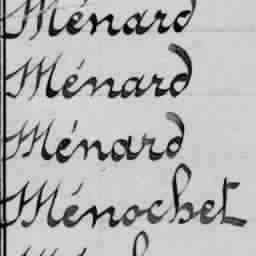 Ménard
Ménard
Ménard
Ménochet